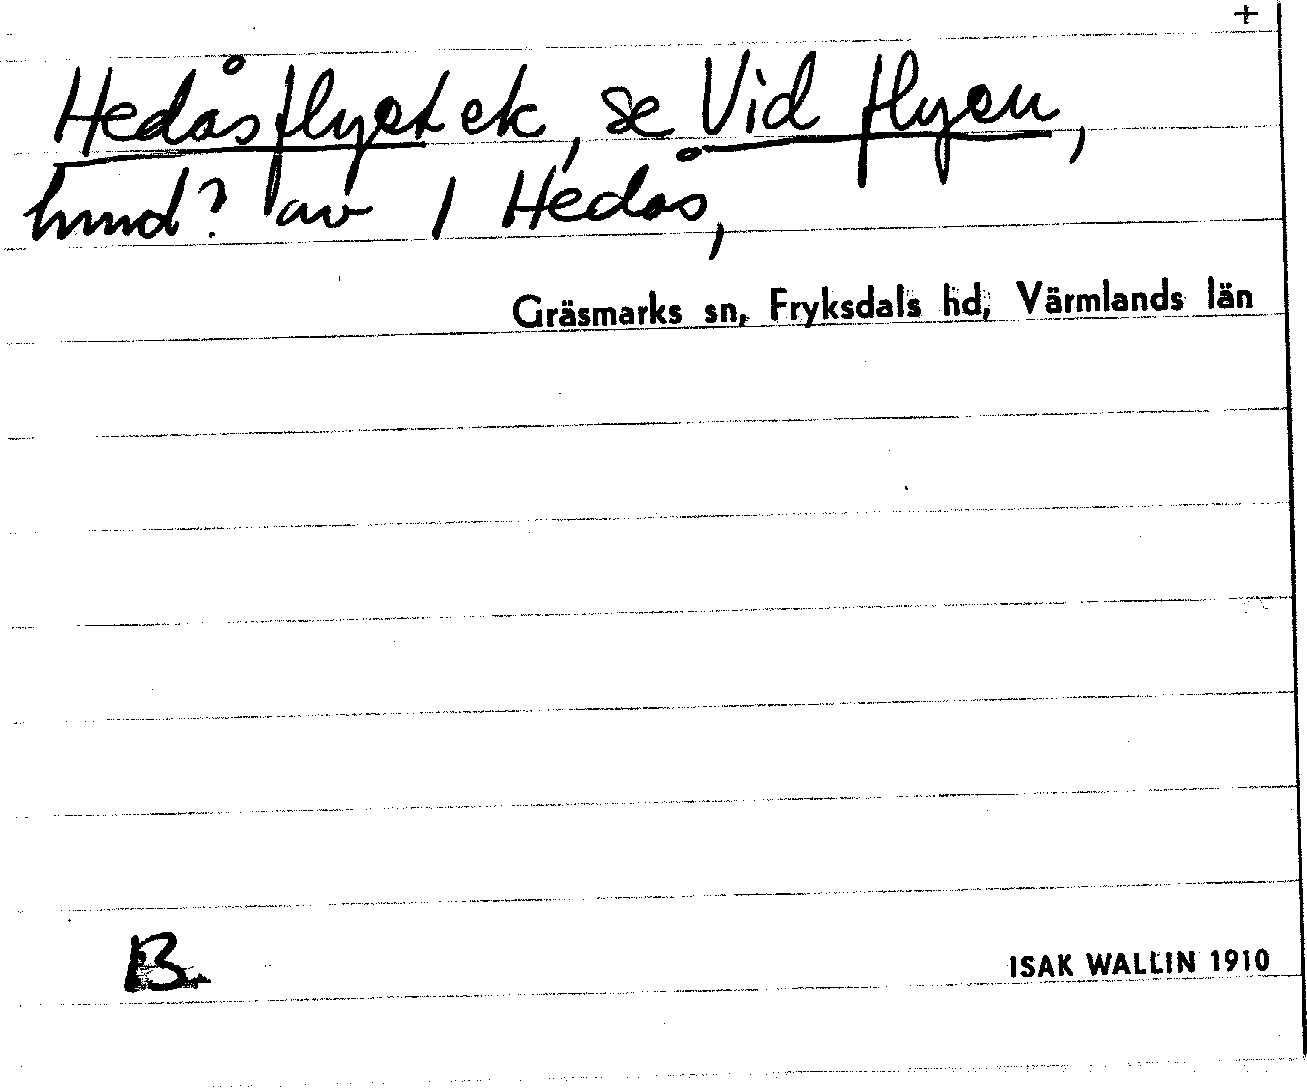 +
Hedåsflyet ek, se Vid flyen,
hmd? av 1 Hedås,
Gräsmarks sn, Fryksdals hd, Värmlands län
B.
ISAK WALLIN 1910